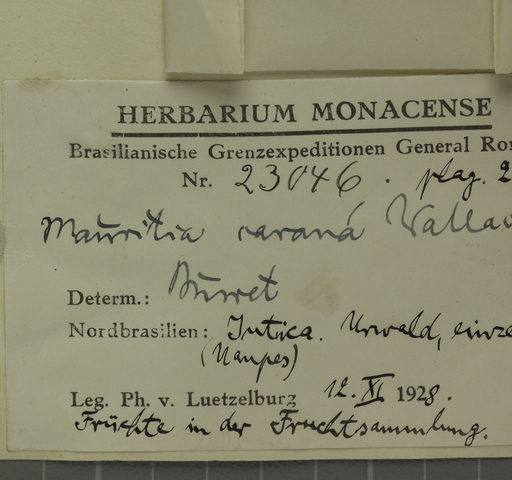 HERBARIUM MONACENSE
Brasilianische Grenzexpeditionen General Ro
Nr. 23046. plag. 2
Mauritia caraná Walla
Determ.: Burret
Nordbrasilien: Urwald, einze
(Uaupes)
Leg. Ph. v. Luetzelburg 12. XI 1928.
Früchte in der Fruchtsammlung.